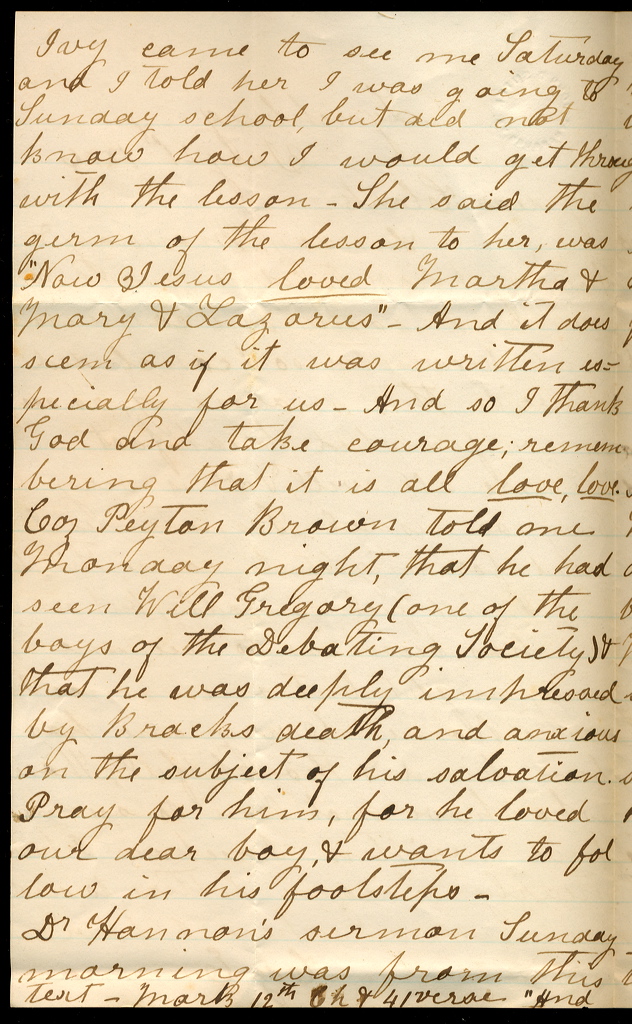 Ivy came to see me Saturday
and I told her I was going to
Sunday school, but did not
know how I would get throug
with the lesson - She said the
germ of the lesson to her, was
"Now Jesus loved Martha &
Mary & Lazarus" - And it does
seem as if it was written es=
pecially for us - And so I thank
God and take courage; remem
bering that it is all love, love.
Coz Peyton Brown told me
Monday night, that he had
seen Will Gregory (one of the
boys of the Debating Society) &
that he was deeply impressed
by Bracks death, and anxious
on the subject of his salvation.
Pray for him, for he loved
our dear boy, & wants to fol
low in his footsteps -
Dr Hannon's sermon Sunday
morning was from this
text - Mark 12th Ch & 41 verse "And